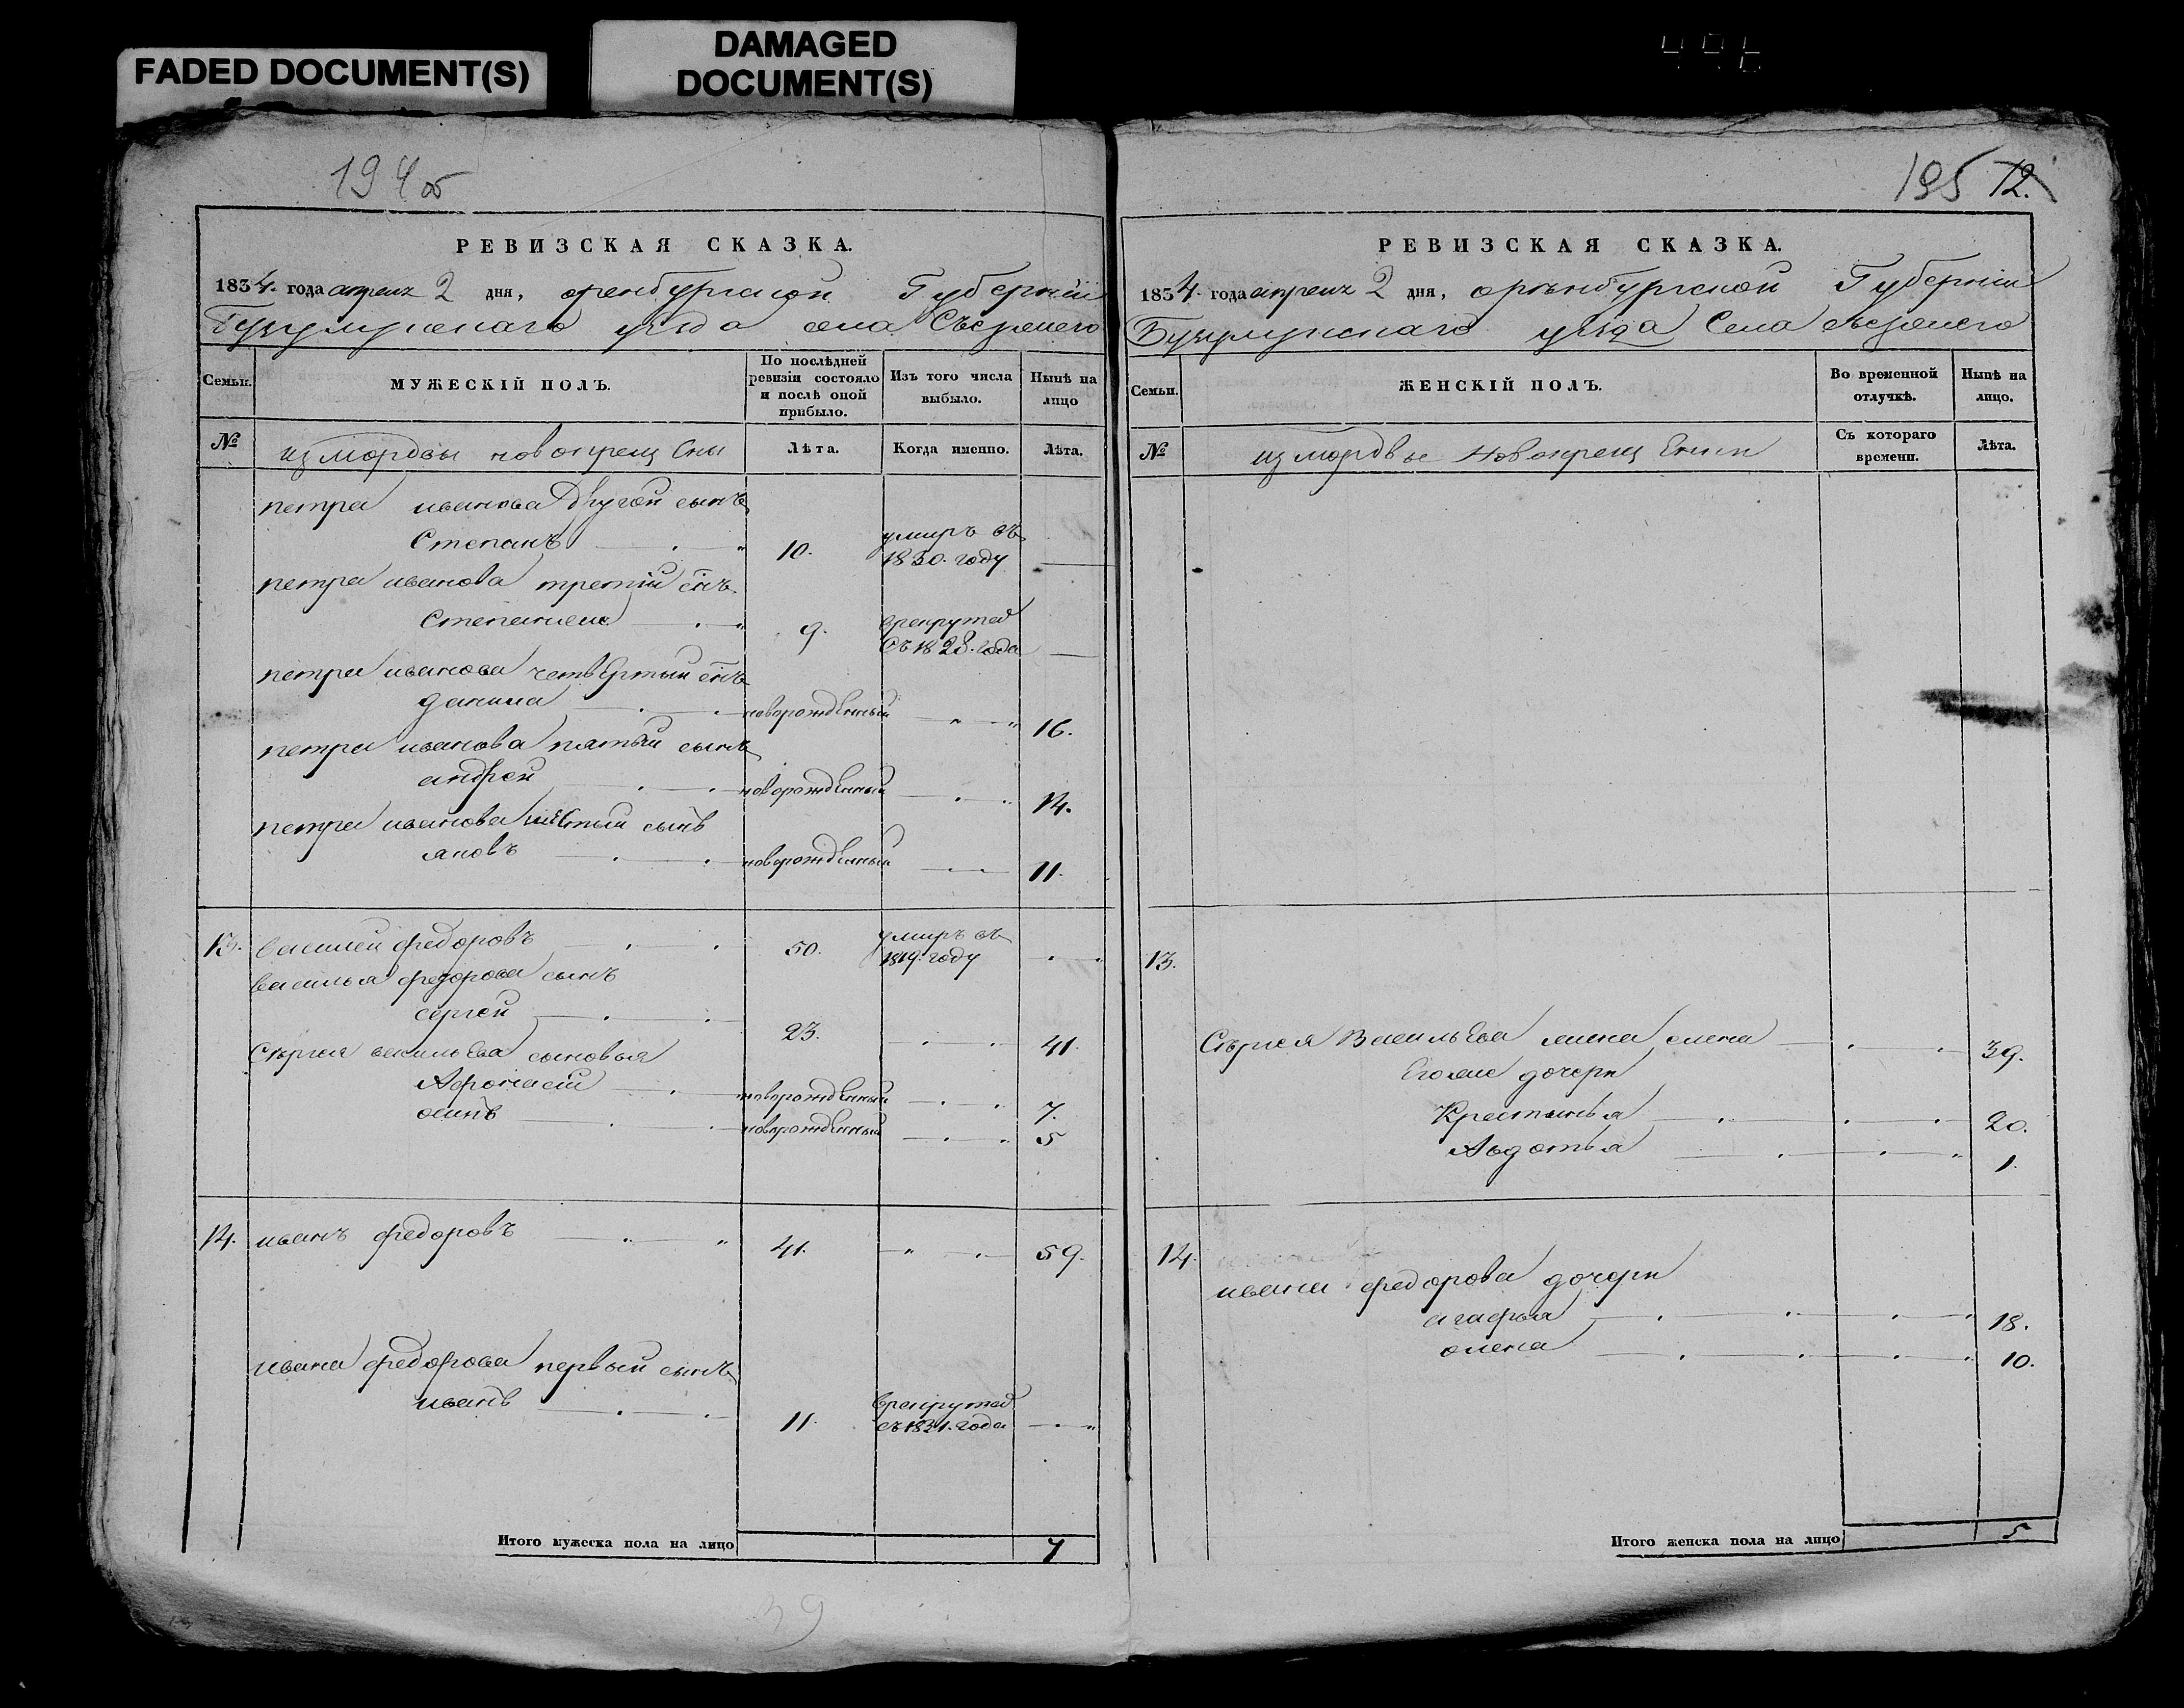 FADED DOCUMENT(S)
DAMAGED
DOCUMENT(S)
194об
РЕВИЗСКАЯ СКАЗКА.
1834. года апреля 2 дня, оренбургской Губернiи
Бузулукскаго уезда села Съезжаго
Семьи.
МУЖЕСКIЙ ПОЛЪ.
По послѣдней ревизiи состояло и послѣ оной прибыло.
Изъ того числа выбыло.
Нынѣ на лицо
№
из мордвы новокрещены
Лѣта.
Когда именно.
Лѣта.
петра иванова другой сынъ
Степанъ 10. умиръ въ 1830. году
петра иванова третiй снъ
Степанже 9. врекруты съ 1828. года
петра иванова четвертый снъ
данила новорожденный 16.
петра иванова пятый сынъ
андрей новорожденный 14.
петра иванова шестый сынъ
яковъ новорожденный 11.
13. василей федоровъ 50. умиръ въ 1819. году
василья федорова сынъ
сергей 23. 41.
Сергея васильева сыновья
Афонасiй новорожденный 7.
осипъ новорожденный 5
14. иванъ федоровъ 41. 59.
ивана федорова первый сынъ
иванъ 11. врекруты съ 1831. года
Итого мужеска пола на лицо 7
39
195 12.
РЕВИЗСКАЯ СКАЗКА.
1834. года апреля 2 дня, оренбургской Губернiи
Бузулукскаго уезда Села съезжаго
Семьи.
ЖЕНСКIЙ ПОЛЪ.
Во временной отлучкѣ.
Нынѣ на лицо.
№
из мордвы Новокрещены
Съ котораго времени.
Лѣта.
13.
Сергея Васильева жена елена 39.
Егоже дочери
Крестинья 20.
Авдотья 1.
14.
ивана федорова дочери
агафья 18.
олена 10.
Итого женска пола на лицо 5